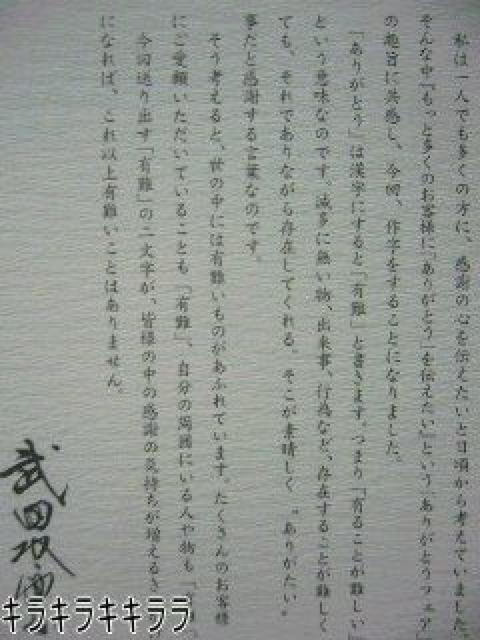 私は一人でも多くの方に、感謝の心を伝えたいと日頃から考えていました。
そんな中『もっと多くのお客様に「ありがとう」を伝えたい』という「ありがとうフェア
の趣旨に共感し、今回、作字をすることになりました。
「ありがとう」は漢字にすると「有難」と書きます。つまり「有ることが難しい」
という意味なのです。滅多に無い物、出来事、行為など、存在することが難しく
ても、それでありながら存在してくれる。そこが素晴しく〝ありがたい〟
事だと感謝する言葉なのです。
そう考えると、世の中には有難いものがあふれています。たくさんのお客様
にご愛顧いただいていることも「有難」、自分の周囲にいる人や物も「
今回送り出す「有難」の二文字が、皆様の中の感謝の気持ちが増えるき
になれば、これ以上有難いことはありません。
武田双
キラキラキキララ